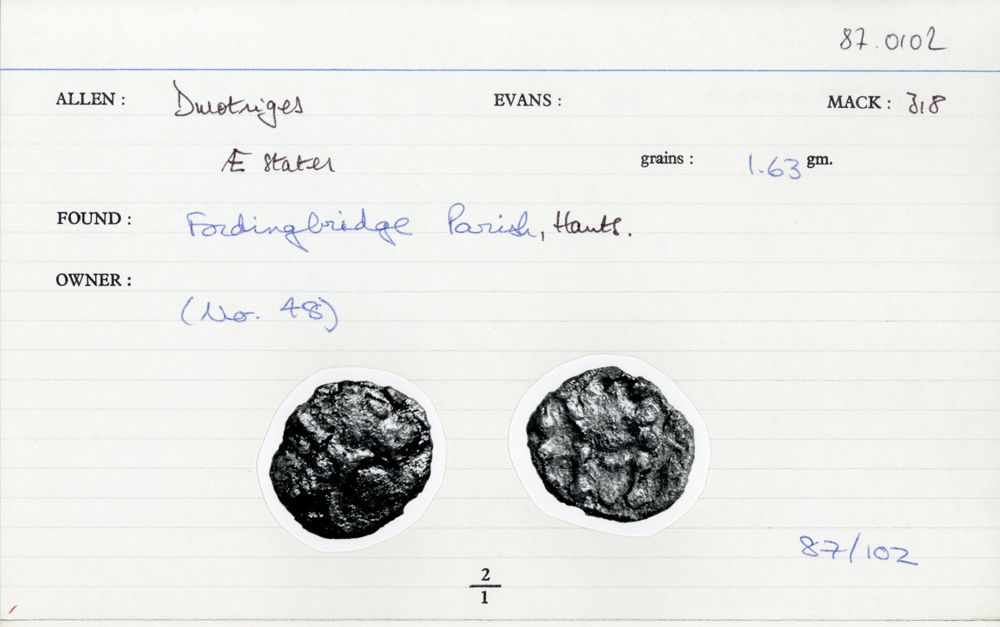 87.0102
ALLEN : Durotriges EVANS : MACK : 318
Æ Stater grains : 1.63 gm.
FOUND : Fordingbridge Parish, Hants.
OWNER :
(No. 48)
87/102
2
1